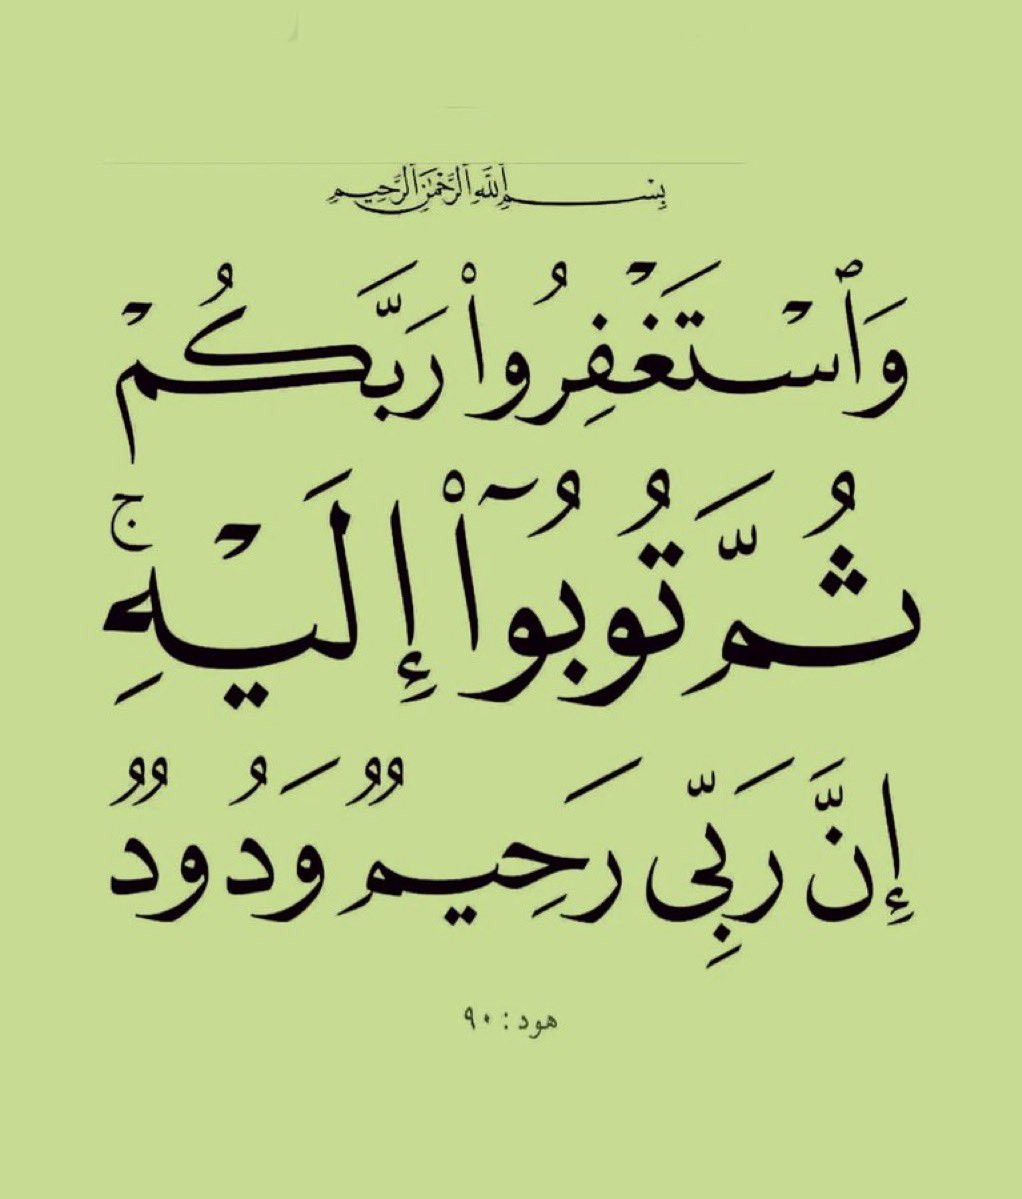 بِسْمِ ٱللَّهِ ٱلرَّحْمَٰنِ ٱلرَّحِيمِ
وَٱسْتَغْفِرُوا۟ رَبَّكُمْ
ثُمَّ تُوبُوٓا۟ إِلَيْهِ ۚ
إِنَّ رَبِّى رَحِيمٌ وَدُودٌ
هود: ٩٠